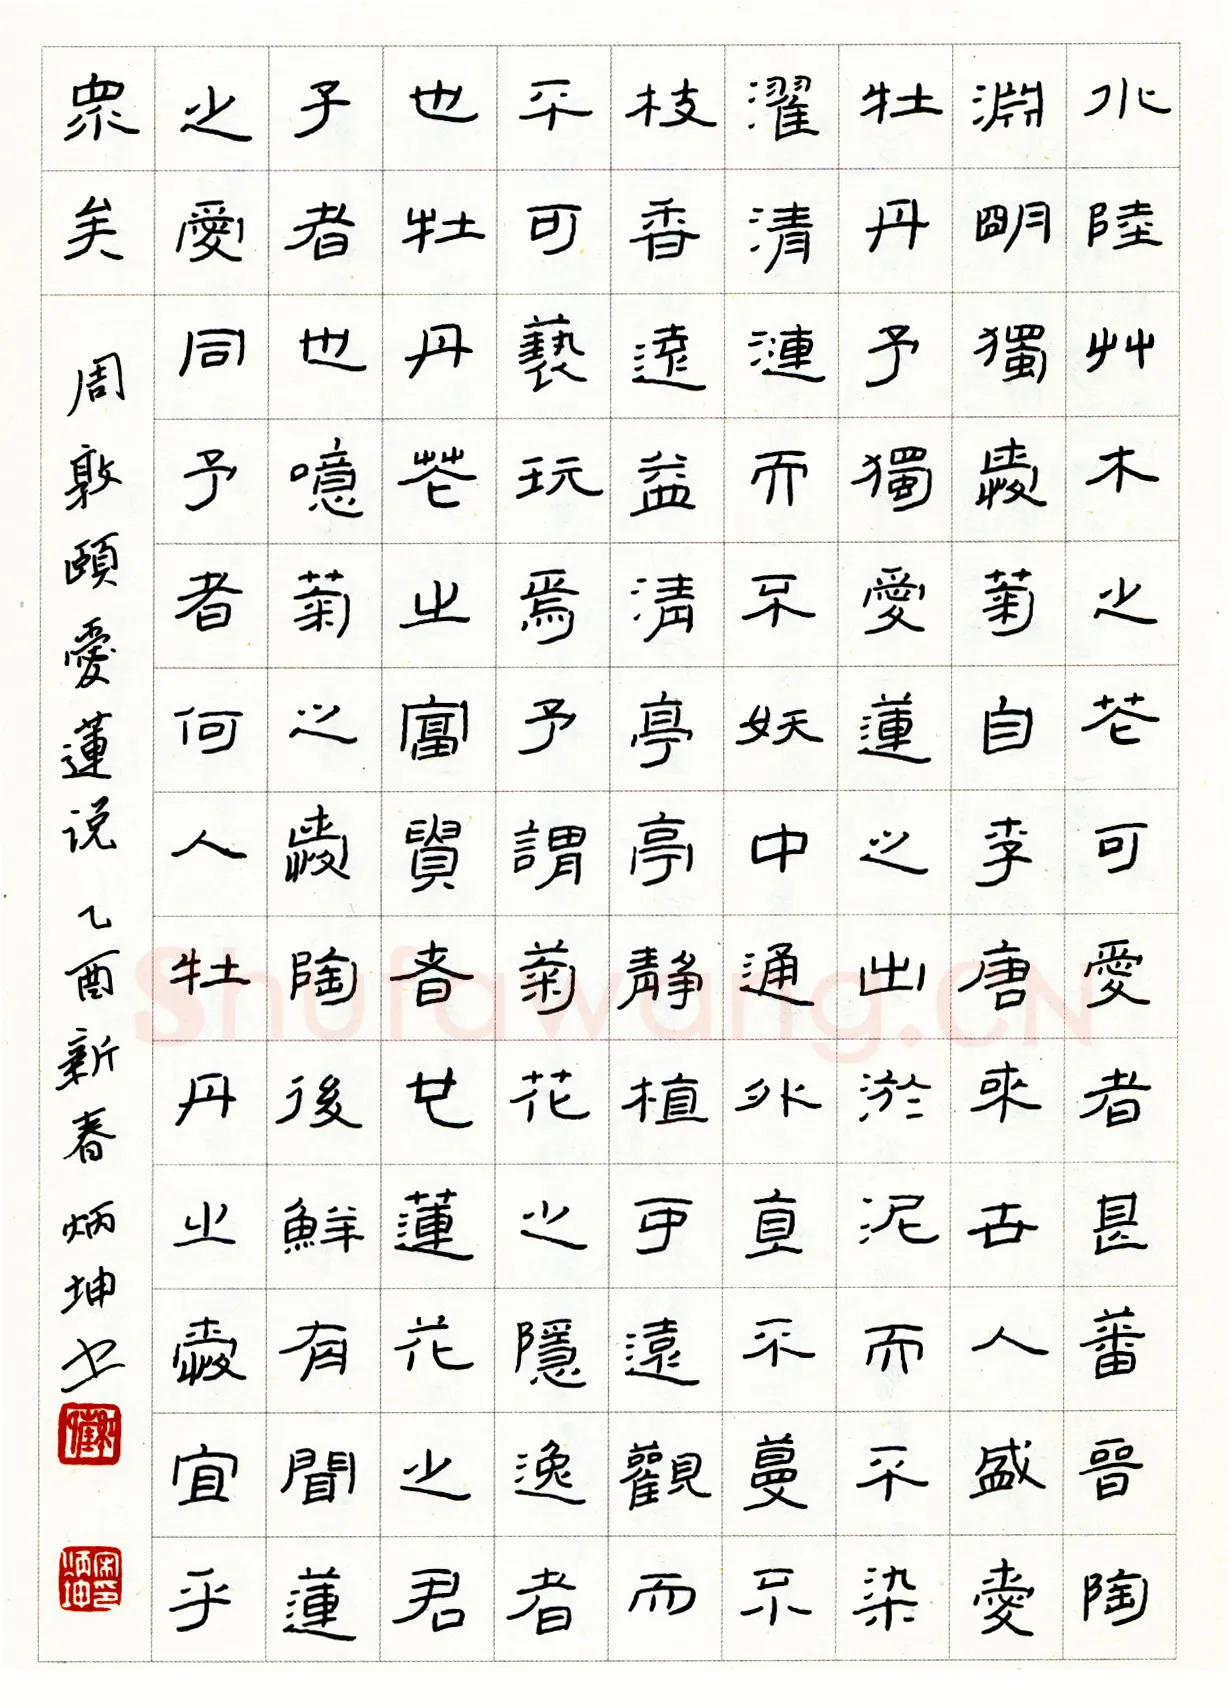 水陸艸木之花可愛者甚蕃晉陶
淵明獨愛菊自李唐來世人盛愛
牡丹予獨愛蓮之出淤泥而不染
濯清漣而不妖中通外直不蔓不
枝香遠益清亭亭靜植可遠觀而
不可褻玩焉予謂菊花之隱逸者
也牡丹花之富貴者也蓮花之君
子者也噫菊之愛陶後鮮有聞蓮
之愛同予者何人牡丹之愛宜乎
眾矣 周敦頤愛蓮说 乙酉新春 炳坤书
Shufawang.CN